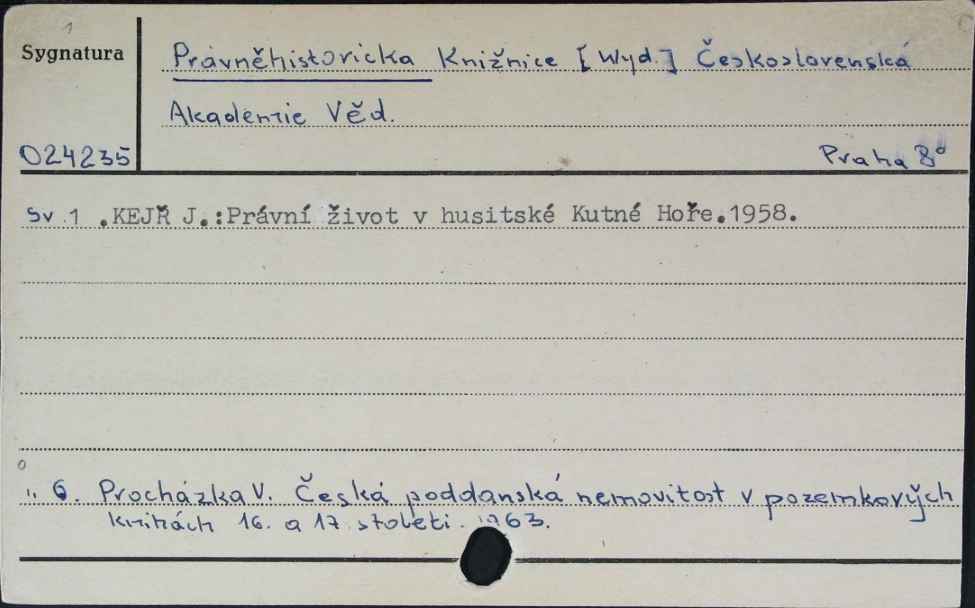 1
Sygnatura
Právněhistorická Knižnice [Wyd.] Československá
Akademie Věd.
024235
Praha 8°
Sv. 1 .KEJŘ J.:Právní život v husitské Kutné Hoře.1958.
" 6. Procházka V. Česká poddanská nemovitost v pozemkových
knihách 16. a 17. století. 1963.